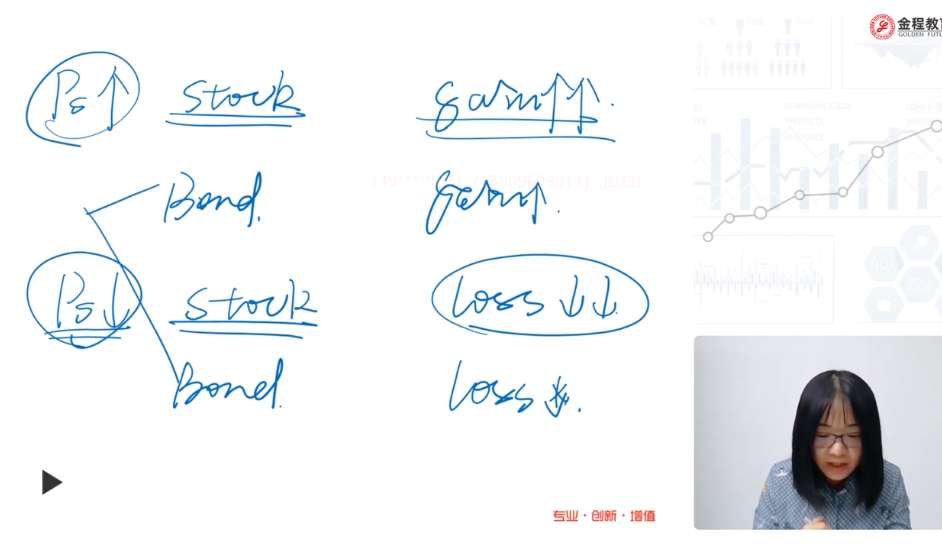 金程教育
GOLDEN FUTU
Ps↑ Stock gain↑↑.
Bond. gain↑.
Ps↓ Stock loss↓↓.
Bond. loss↓.
专业・创新・增值